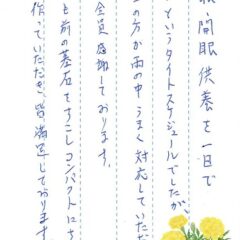 開眼供養を一日で
というタイトスケジュールでしたが、
の方が雨の中うまく対応していただ
全員感謝しております。
も前の墓石をすこしコンパクトにち
作っていただき、皆満足しております